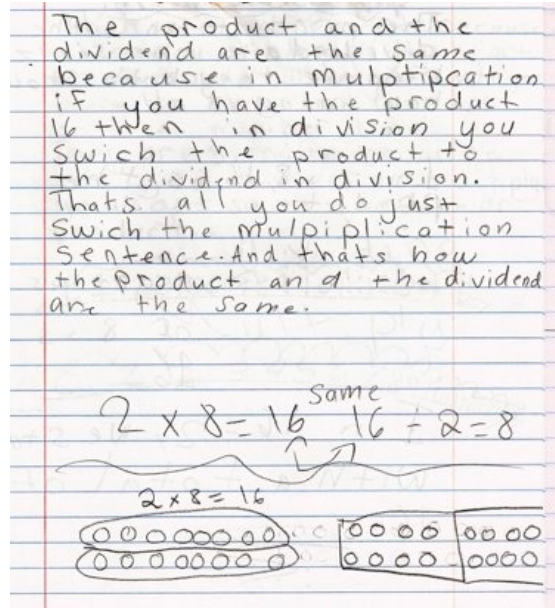 The product and the
dividend are the same
because in mulptipcation
if you have the product
16 then in division you
Swich the product to
the dividend in division.
Thats all you do just
Swich the mulpiplication
Sentence. And thats how
the product and the dividend
are the same.
Same
2 x 8 = 16 16 ÷ 2 = 8
2 x 8 = 16